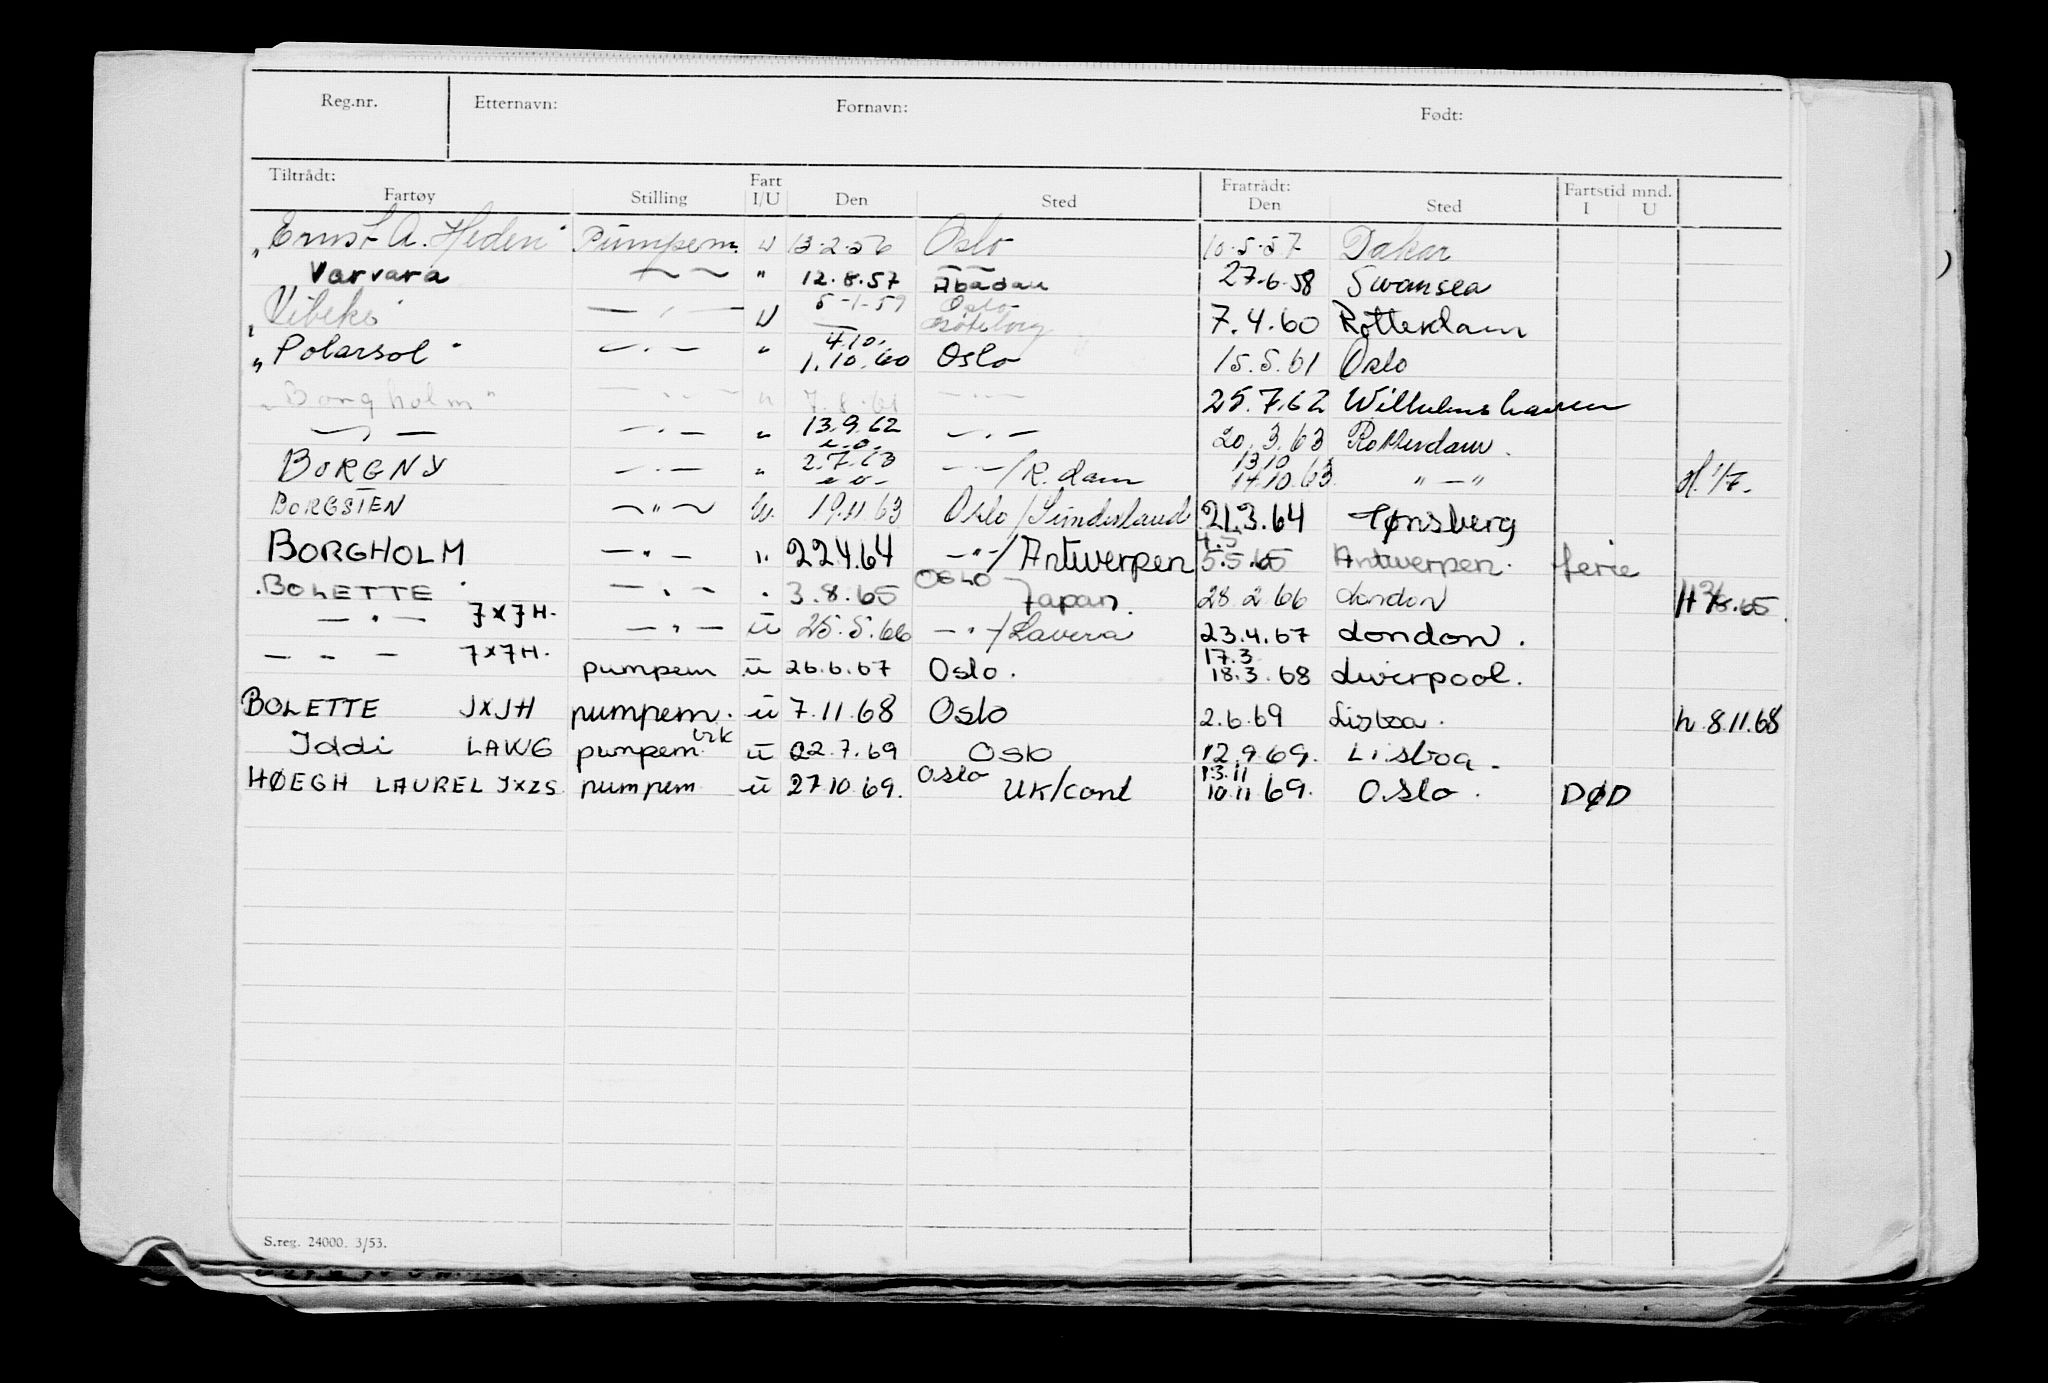 Reg.nr. Etternavn: Fornavn: Født:
Tiltrådt: Fart Fratrådt: Fartstid mnd.
Fartøy Stilling I/U Den Sted Den Sted I U
"Ernst A. Heden" Pumpem. U 13.2.56 Oslo 10.5.57 Dakar
Varvara — " — " 12.8.57 Abadan 27.6.58 Swansea
"Vibeke" — " — U 5-1-59 Oslo Gøteborg 7.4.60 Rotterdam
"Polarsol" — " — " 4.10. 1.10.60 Oslo 15.5.61 Oslo
"Borgholm" — " — " 7.8.61 — " — 25.7.62 Wilhelmshaven
— " — — " — " 13.9.62 — " — 20.3.63 Rotterdam.
BORGNY — " — " 2.7.63 — " — /R.dam 13.10 14.10.63. " — "
BORGSTEN — " — U. 19.11.63 Oslo/Sunderland 21.3.64 Tønsberg
BORGHOLM — " — ". 22.4.64 — " — /Antwerpen 4.5 5.5.65 Antwerpen. ferie
BOLETTE — " — " 3.8.65 OSLO Japan. 28.2.66 London
— " — JXJH. — " — u 25.5.66 — " — /Lavera 23.4.67 London.
— — — JXJH. pumpem u 26.6.67 Oslo. 17.3 18.3.68 Liverpool.
BOLETTE JXJH pumpem. u 7.11.68 Oslo 2.6.69 Lisboa. h. 8.11.68
Iddi LAWG pumpem vik u 22.7.69 Oslo 12.9.69. Lisboa.
HØEGH LAUREL JXZS pumpem u 27.10.69. Oslo UK/cont 13.11 10.11 69. Oslo. DØD
S.reg. 24000. 3/53.